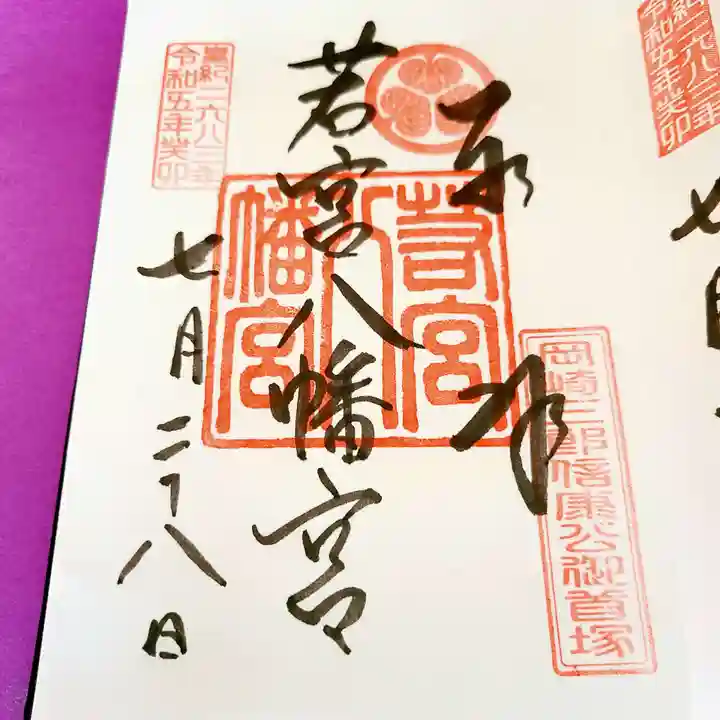 奉拝
岡崎三郎信康公御首塚
若宮八幡宮
若宮
八
幡宮
皇紀二六八三年
令和五年癸卯
七月二十八日
皇紀二六八三年
令和五年癸卯
七月